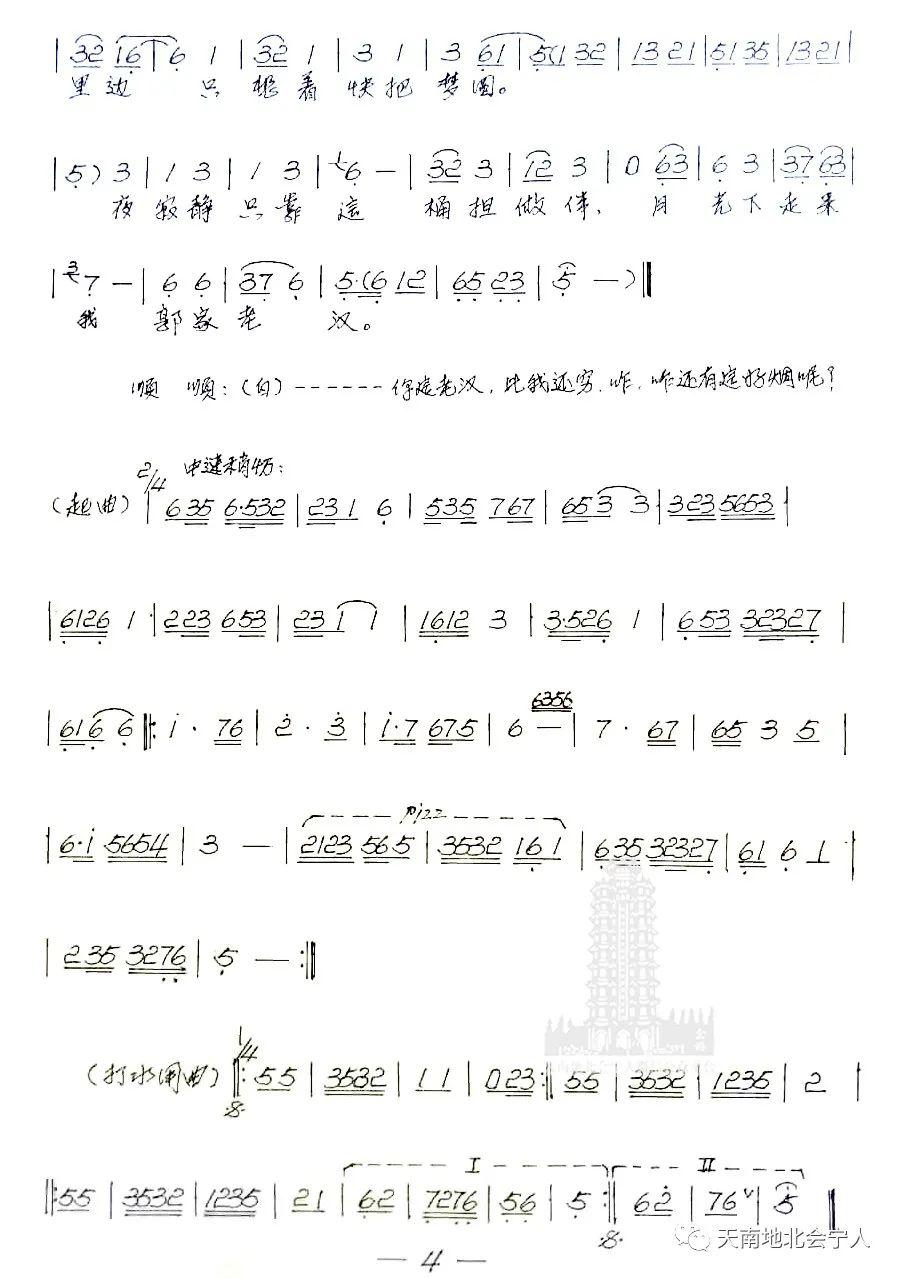 | 32 16 | 6 1 | 32 1 | 3 1 | 3 61 | 5(1 32 | 13 21 | 51 35 | 13 21 |
里边 只想着快把梦圆。
| 5) 3 | 1 3 | 1 3 | 6 - | 32 3 | 12 3 | 0 63 | 6 3 | 37 63 |
夜寂静只靠這 桶担做伴,月光下走来
| 7 - | 6 6 | 37 6 | 5·(6 12 | 65 23 | 5 - ) ‖
我 郭家老 汉。
顺 顺:(白)------你这老汉,比我还穷,咋,咋还有这好烟呢?
2/4 中速稍切:
(起曲) | 635 6·532 | 231 6 | 535 767 | 653 3 | 323 5653 |
| 6126 1 · | 223 653 | 231 1 | 1612 3 | 3·526 1 | 653 32327 |
6356
| 616 6 ‖: i · 76 | 2 · 3 | i·7 675 | 6 — | 7 · 67 | 65 3 5 |
pizz
| 6·i 5654 | 3 — | 2123 565 | 3532 161 | 635 32327 | 61 6 1 |
| 235 3276 | 5 — :‖
1/4
(打水用曲) ‖: 55 | 3532 | 11 | 023 :‖ 55 | 3532 | 1235 | 2 |
I II
‖: 55 | 3532 | 1235 | 21 | 62 | 7276 | 56 | 5 :‖ 62 | 76 | 5 ‖
— 4 —
天南地北会宁人